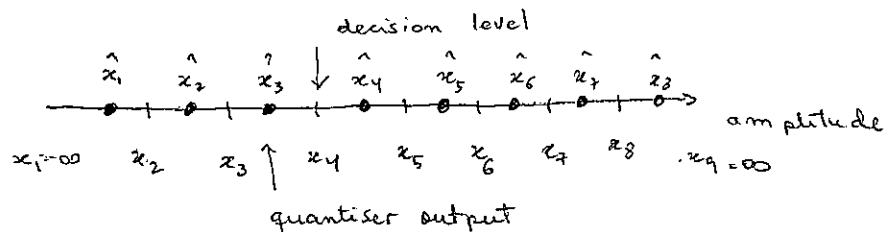 decision level
x̂₁ x̂₂ x̂₃ x̂₄ x̂₅ x̂₆ x̂₇ x̂₈
amplitude
x₁=-∞ x₂ x₃ x₄ x₅ x₆ x₇ x₈ x₉=∞
quantiser output